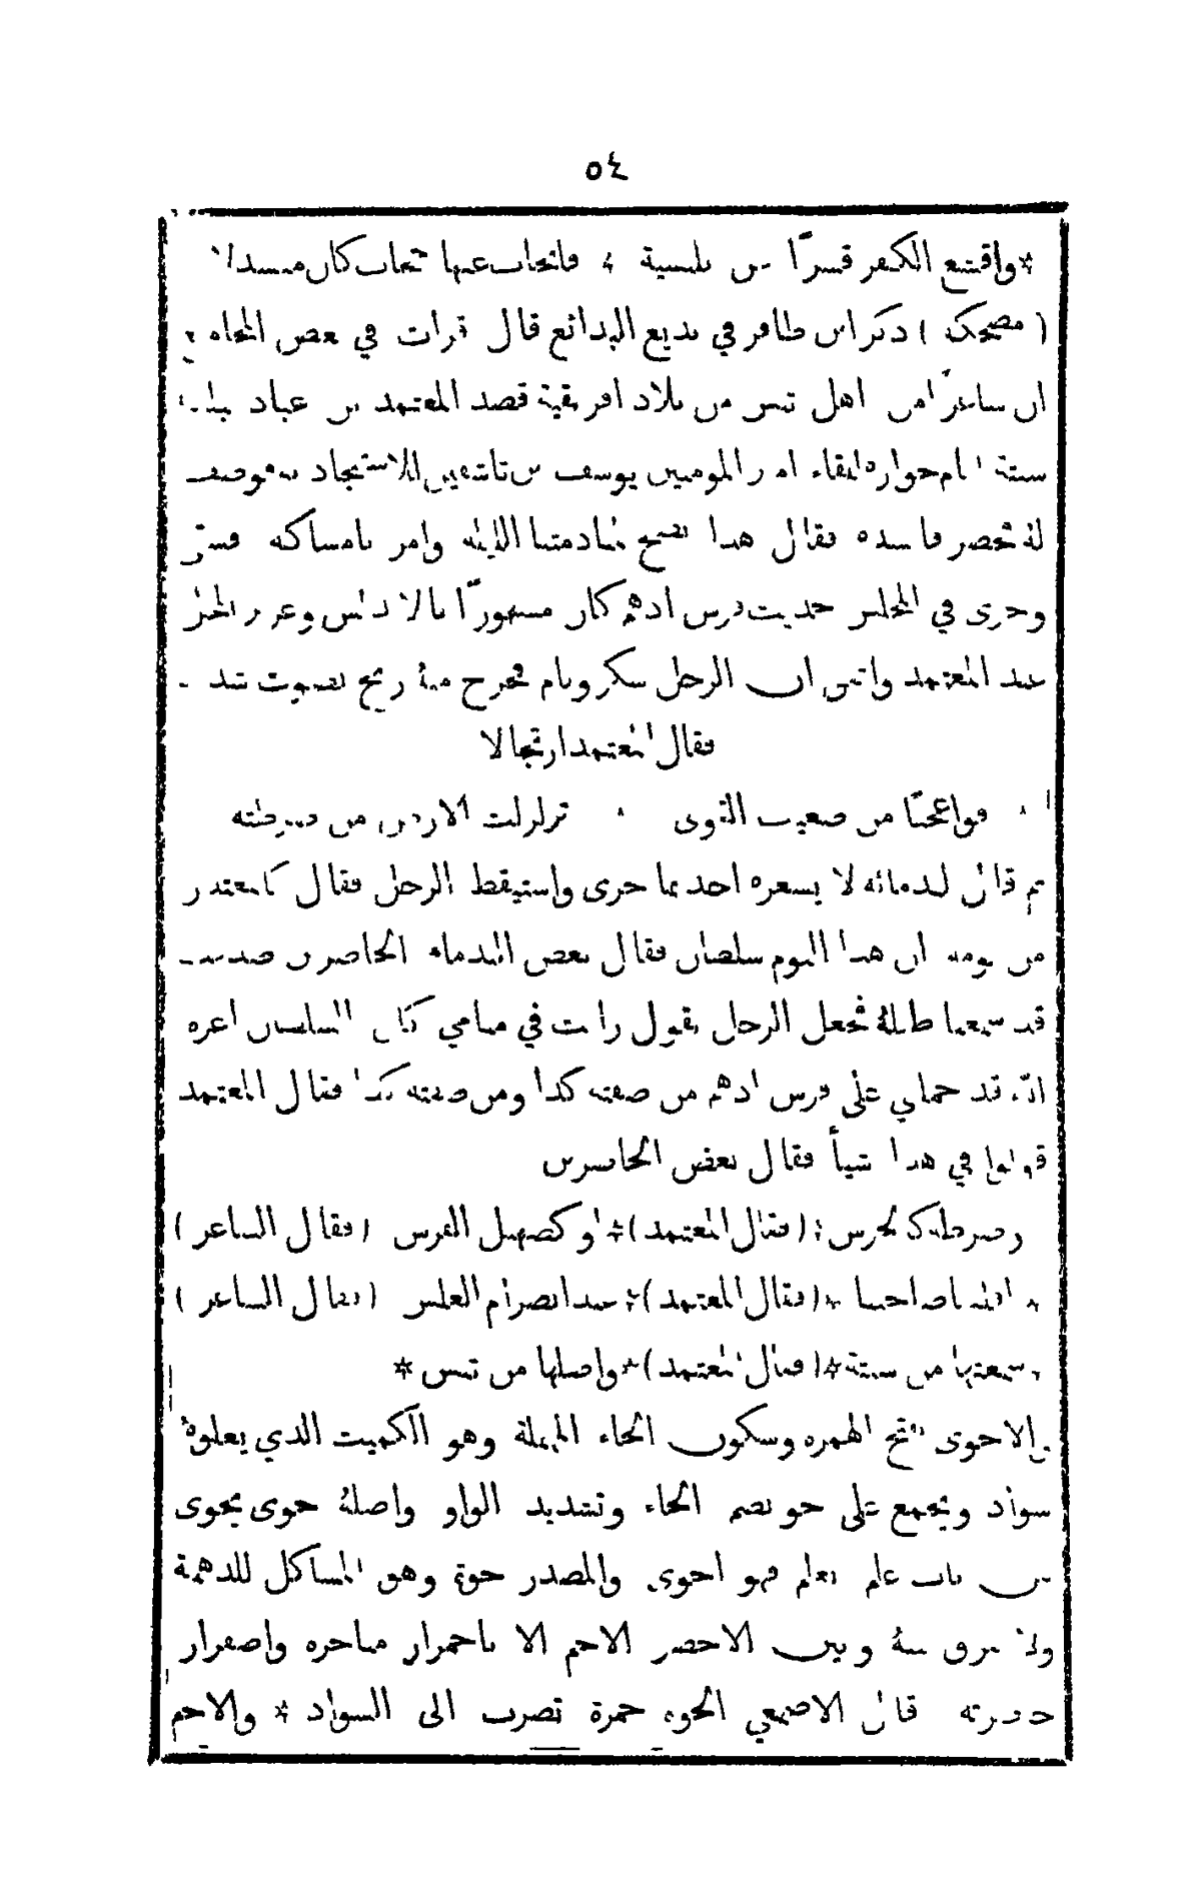 ٥٤
*واقتنع الكفر قسرًا من بلنسية * فانجاب عنها حجاب كان منسدلا
(مضحكة) ذكر ابن ظافر في بدائع البدائع قال قرات في بعض المجاميع
ان شاعرًا من اهل تنس من بلاد افريقية قصد المعتمد بن عباد
سبتة جوازه للقاء امير المومنين يوسف بن تاشفين للاستنجاد به فوصف
لهُ فحضر فانشده فقال هذا يصلح لمنادمتنا الليلة وامر بامساكه فسقى
وجرى في المجلس حديث فرس ادهم كان مشهورًا بالاندلس وعزيز المحل
عند المعتمد واتفق ان الرجل سكر ونام فخرج منهُ ريح بصوت شديد
فقال المعتمد ارتجالا
فواعجبًا من ضعيف القوى * تزلزلت الارض من ضرطته
ثم قال لندمائه لا يشعره احد بما جرى واستيقظ الرجل فقال كالمعتذر
من نومه ان هذا النوم سلطان فقال بعض الندماء الحاضرين صدقت
قد سمعنا طبلهُ فجعل الرجل يقول رايت في منامي كان السلطان اعزه
الله قد حملني على فرس ادهم من صفته كذا ومن صفته كذا فقال المعتمد
قولوا في هذا شيأ فقال بعض الحاضرين
وضرطة كالجرس * (فقال المعتمد) * او كصهيل الفرس (فقال الشاعر)
* صاحبها * (فقال المعتمد) * عند انصرام الغلس (فقال الشاعر)
* سمعتها من سبتة * (فقال المعتمد) * واصلها من تنس *
والاحوى بفتح الهمزه وسكون الحاء المهملة وهو الكميت الذي يعلوهُ
سواد ويجمع على حو بضم الحاء وتشديد الواو واصلهُ حوى يحوى
من باب علم يعلم فهو احوى والمصدر حوة وهو المشاكل للدهمة
ولا فرق بينهُ وبين الاخضر الاحم الا باحمرار مناخره واصفرار
خاصرته قال الاصمعي الحوه حمرة تضرب الى السواد * والاحم